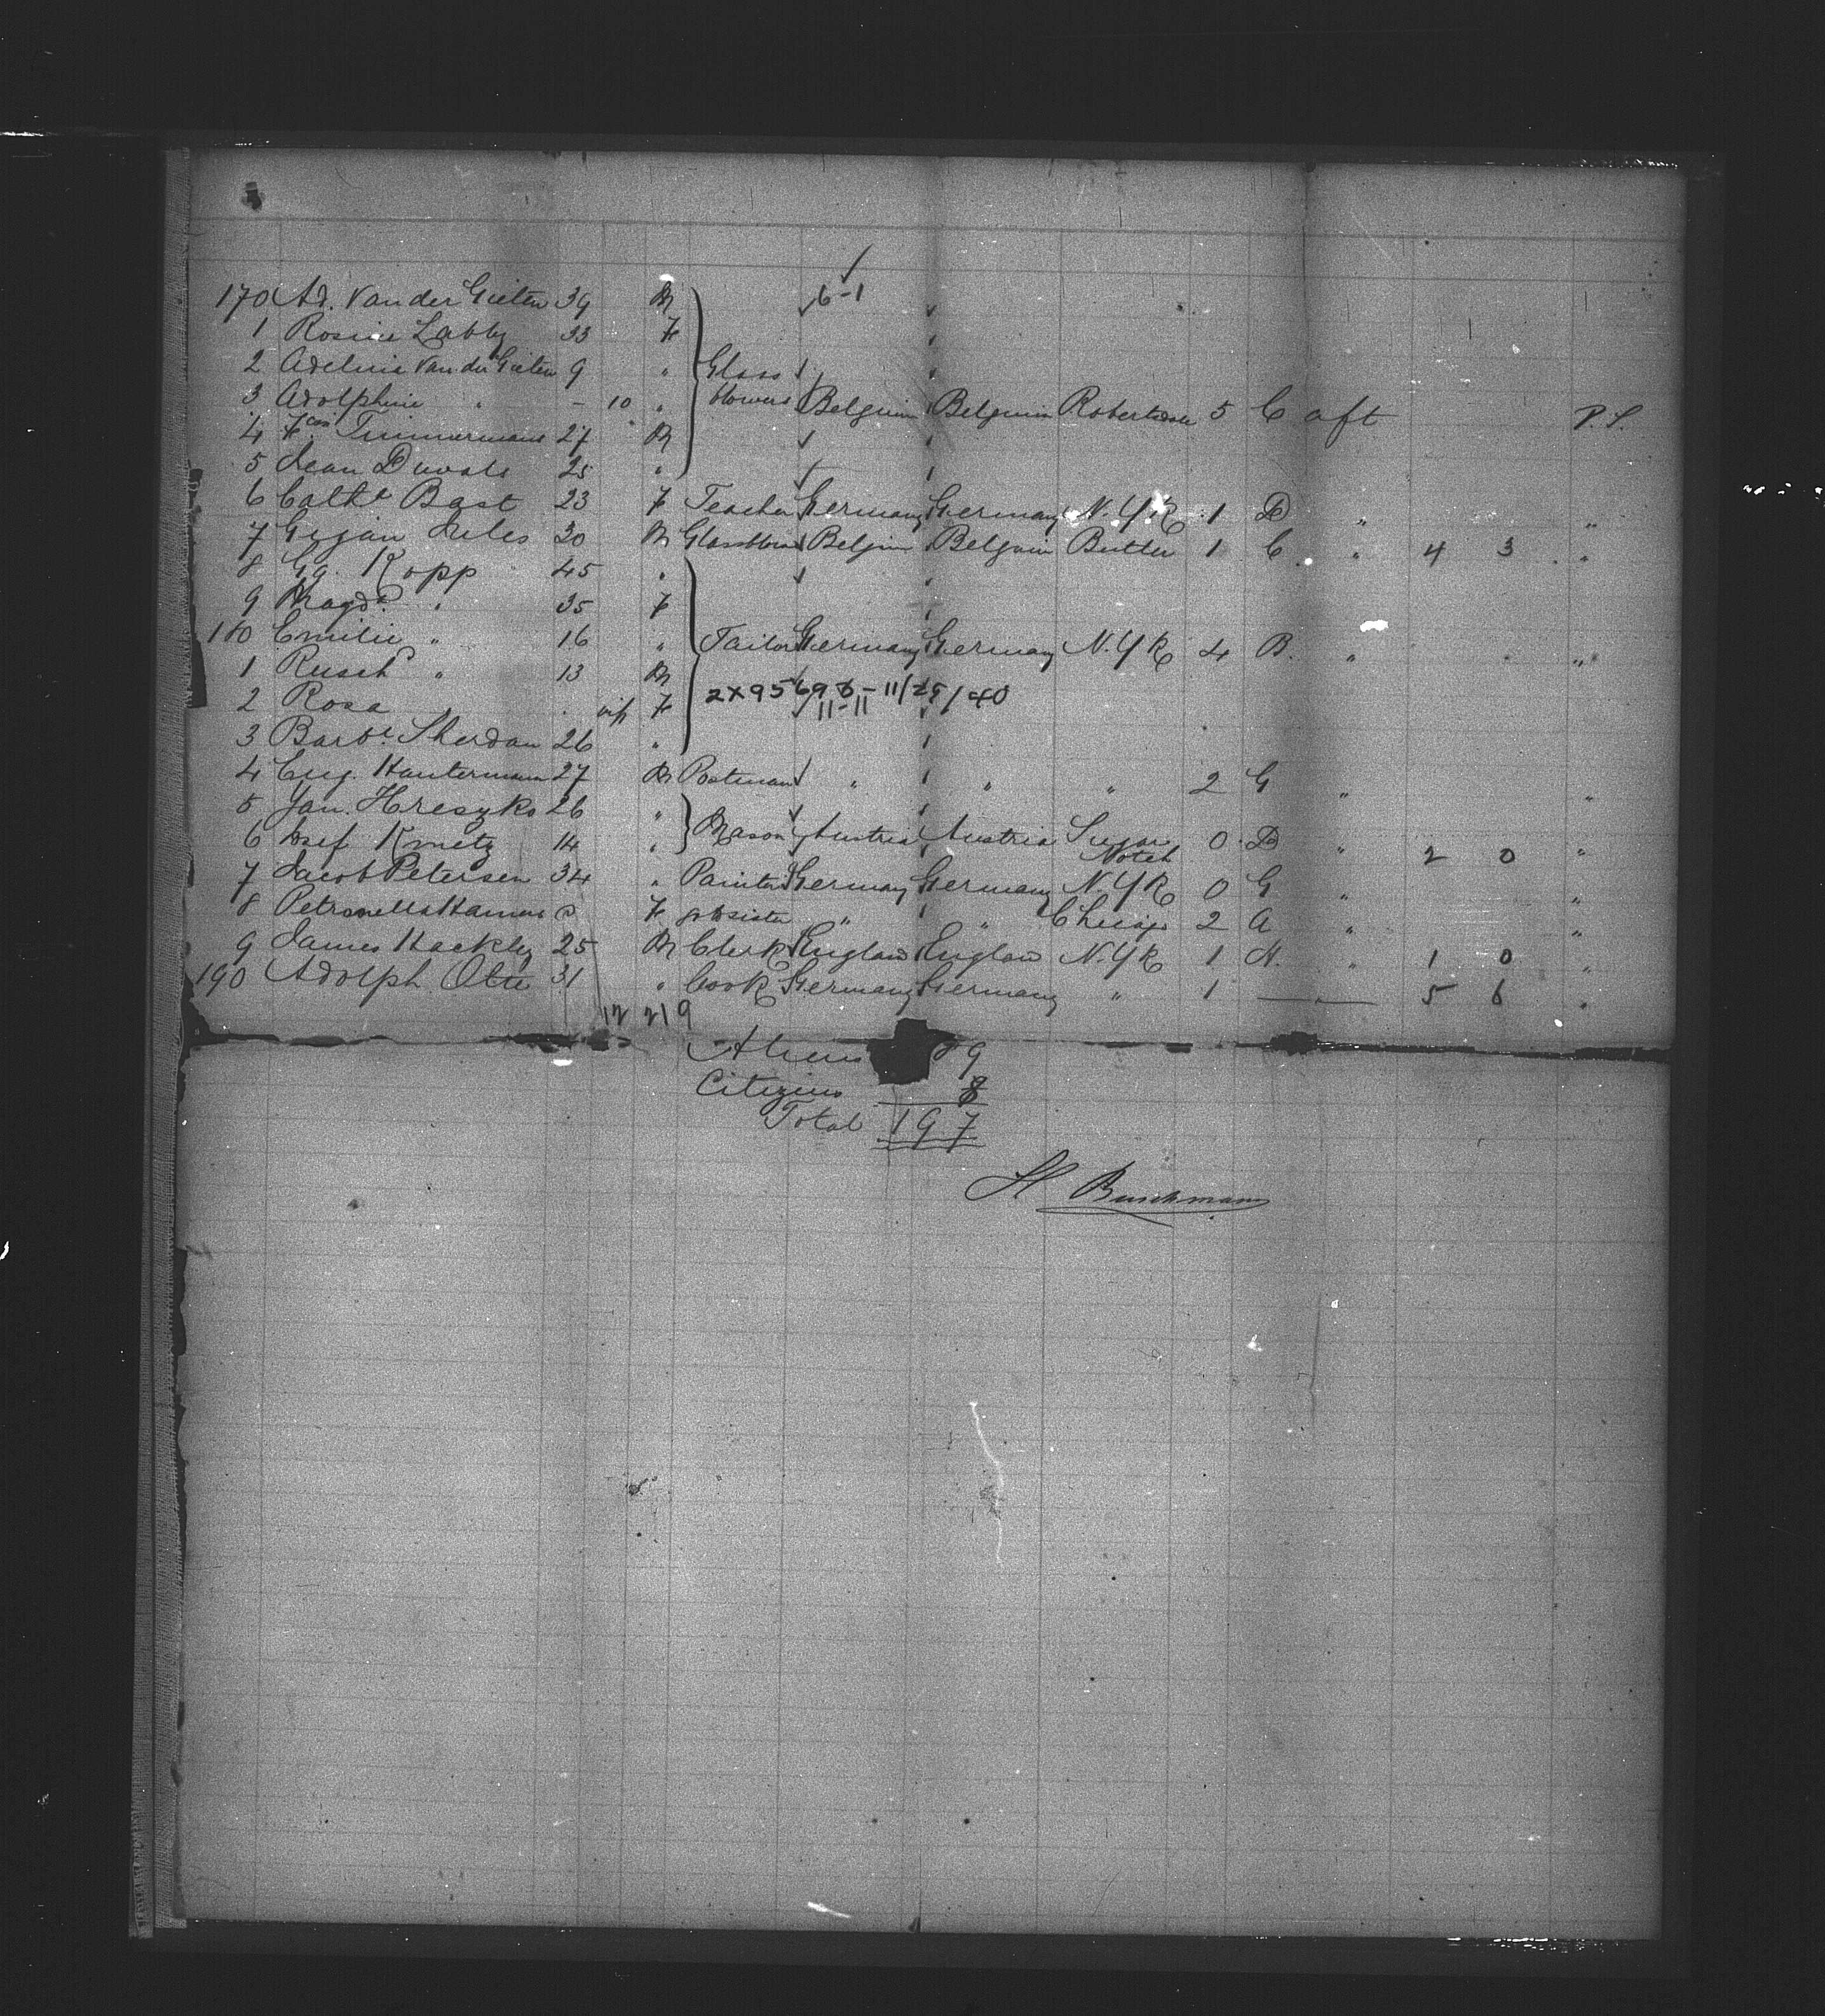 6-1
170 Ad. Van der Gieten 39 M
1 Rosine Labby 33 F
2 Adelina Van der Gieten 9 " Glass
3 Adolphine " - 10 " blowers Belgium Belgium 5 C aft P.S.
4 Timmermans 27 M
5 Jean 25 "
6 Cathe Bast 23 F Teacher Germany Germany N.Y.K 1 D " "
7 Jules 30 M Belgium Belgium Butler 1 C " 4 3 "
8 Gg. Kopp 45 "
9 Magda " 35 F
180 Emilie " 16 " Tailor Germany Germany N.Y.K 4 B. " "
1 " 13 M
2 Rosa " F 2X95696-11/25/40
11-11
3 Barbe Sherdan 26 "
4 Eug. Hautermann 27 M Postman " " " 2 G " "
5 Jan. Hreszko 26 "
6 Josef Kmetz 14 " Mason Austria Austria Sugar Notch 0 D " 2 0 "
7 Jacob Petersen 34 " Painter Germany Germany N.Y.K 0 G " "
8 Petronella F " " 2 A " "
9 James Hackley 25 M Clerk England England N.Y.K 1 H. " 1 0 "
190 Adolph Otte 31 " Cook Germany Germany " 1 — — 5 6 "
12 219
Aliens 89
Citizens 8
Total 197
H Buschmann